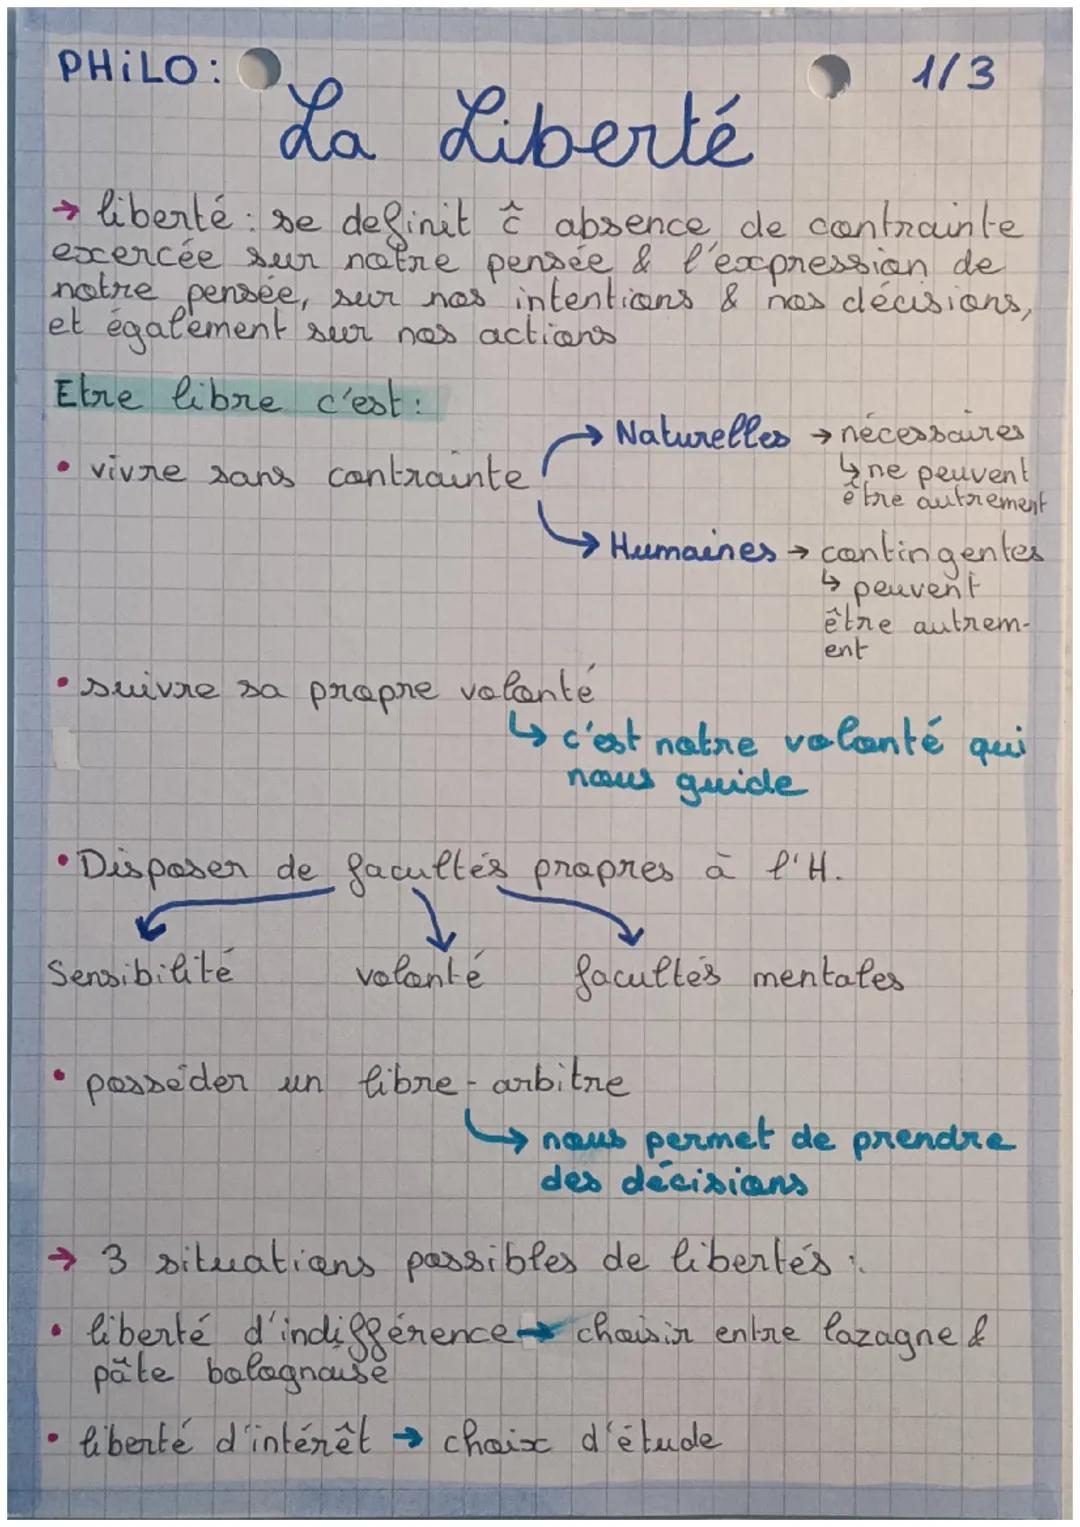 PHiLO:
1/3
La Liberté
→ liberté : se definit c̃ absence de contrainte
excercée sur notre pensée & l'expression de
notre pensée, sur nos intentions & nos décisions,
et également sur nos actions
Etre libre c'est :
→ Naturelles → nécessaires
• vivre sans contrainte
↳ ne peuvent
être autrement
→ Humaines → contingentes
↳ peuvent
être autrem-
ent
• suivre sa propre volonté
↳ c'est notre volonté qui
nous guide
• Disposer de facultés propres à l'H.
Sensibilité volonté facultés mentales
• posséder un libre-arbitre
↳ nous permet de prendre
des décisions
→ 3 situations possibles de libertés :
• liberté d'indifférence → choisir entre lazagne &
pâte bolognaise
• liberté d'intérêt → choix d'étude